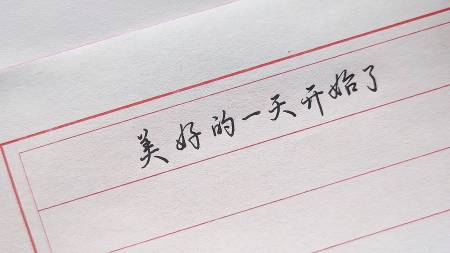 美好的一天开始了